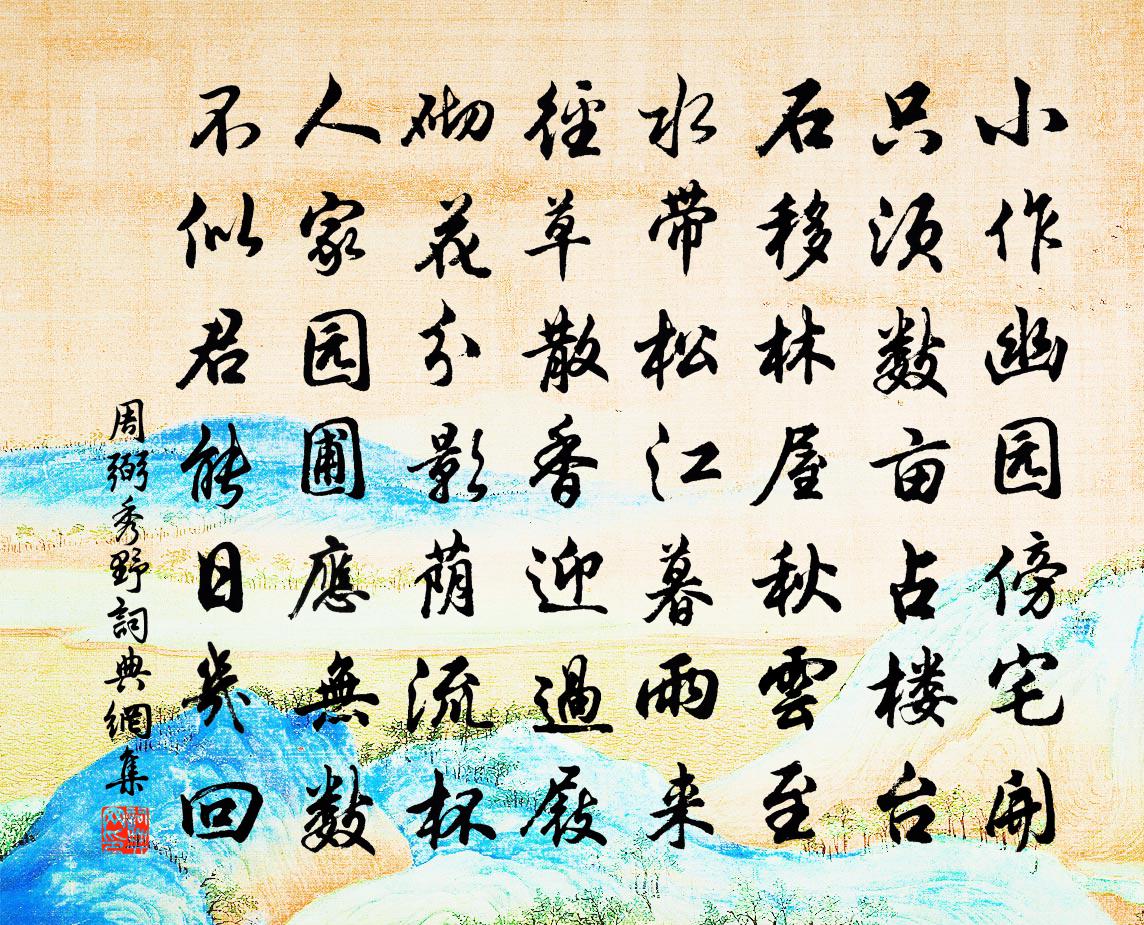 小作幽园傍宅开
只须数亩占楼台
石移林屋秋雲至
水带松江暮雨来
徑草散香迎過屐
砌花分影荫流杯
人家园圃應無数
不似君能日幾回
周弼秀野詞典網集